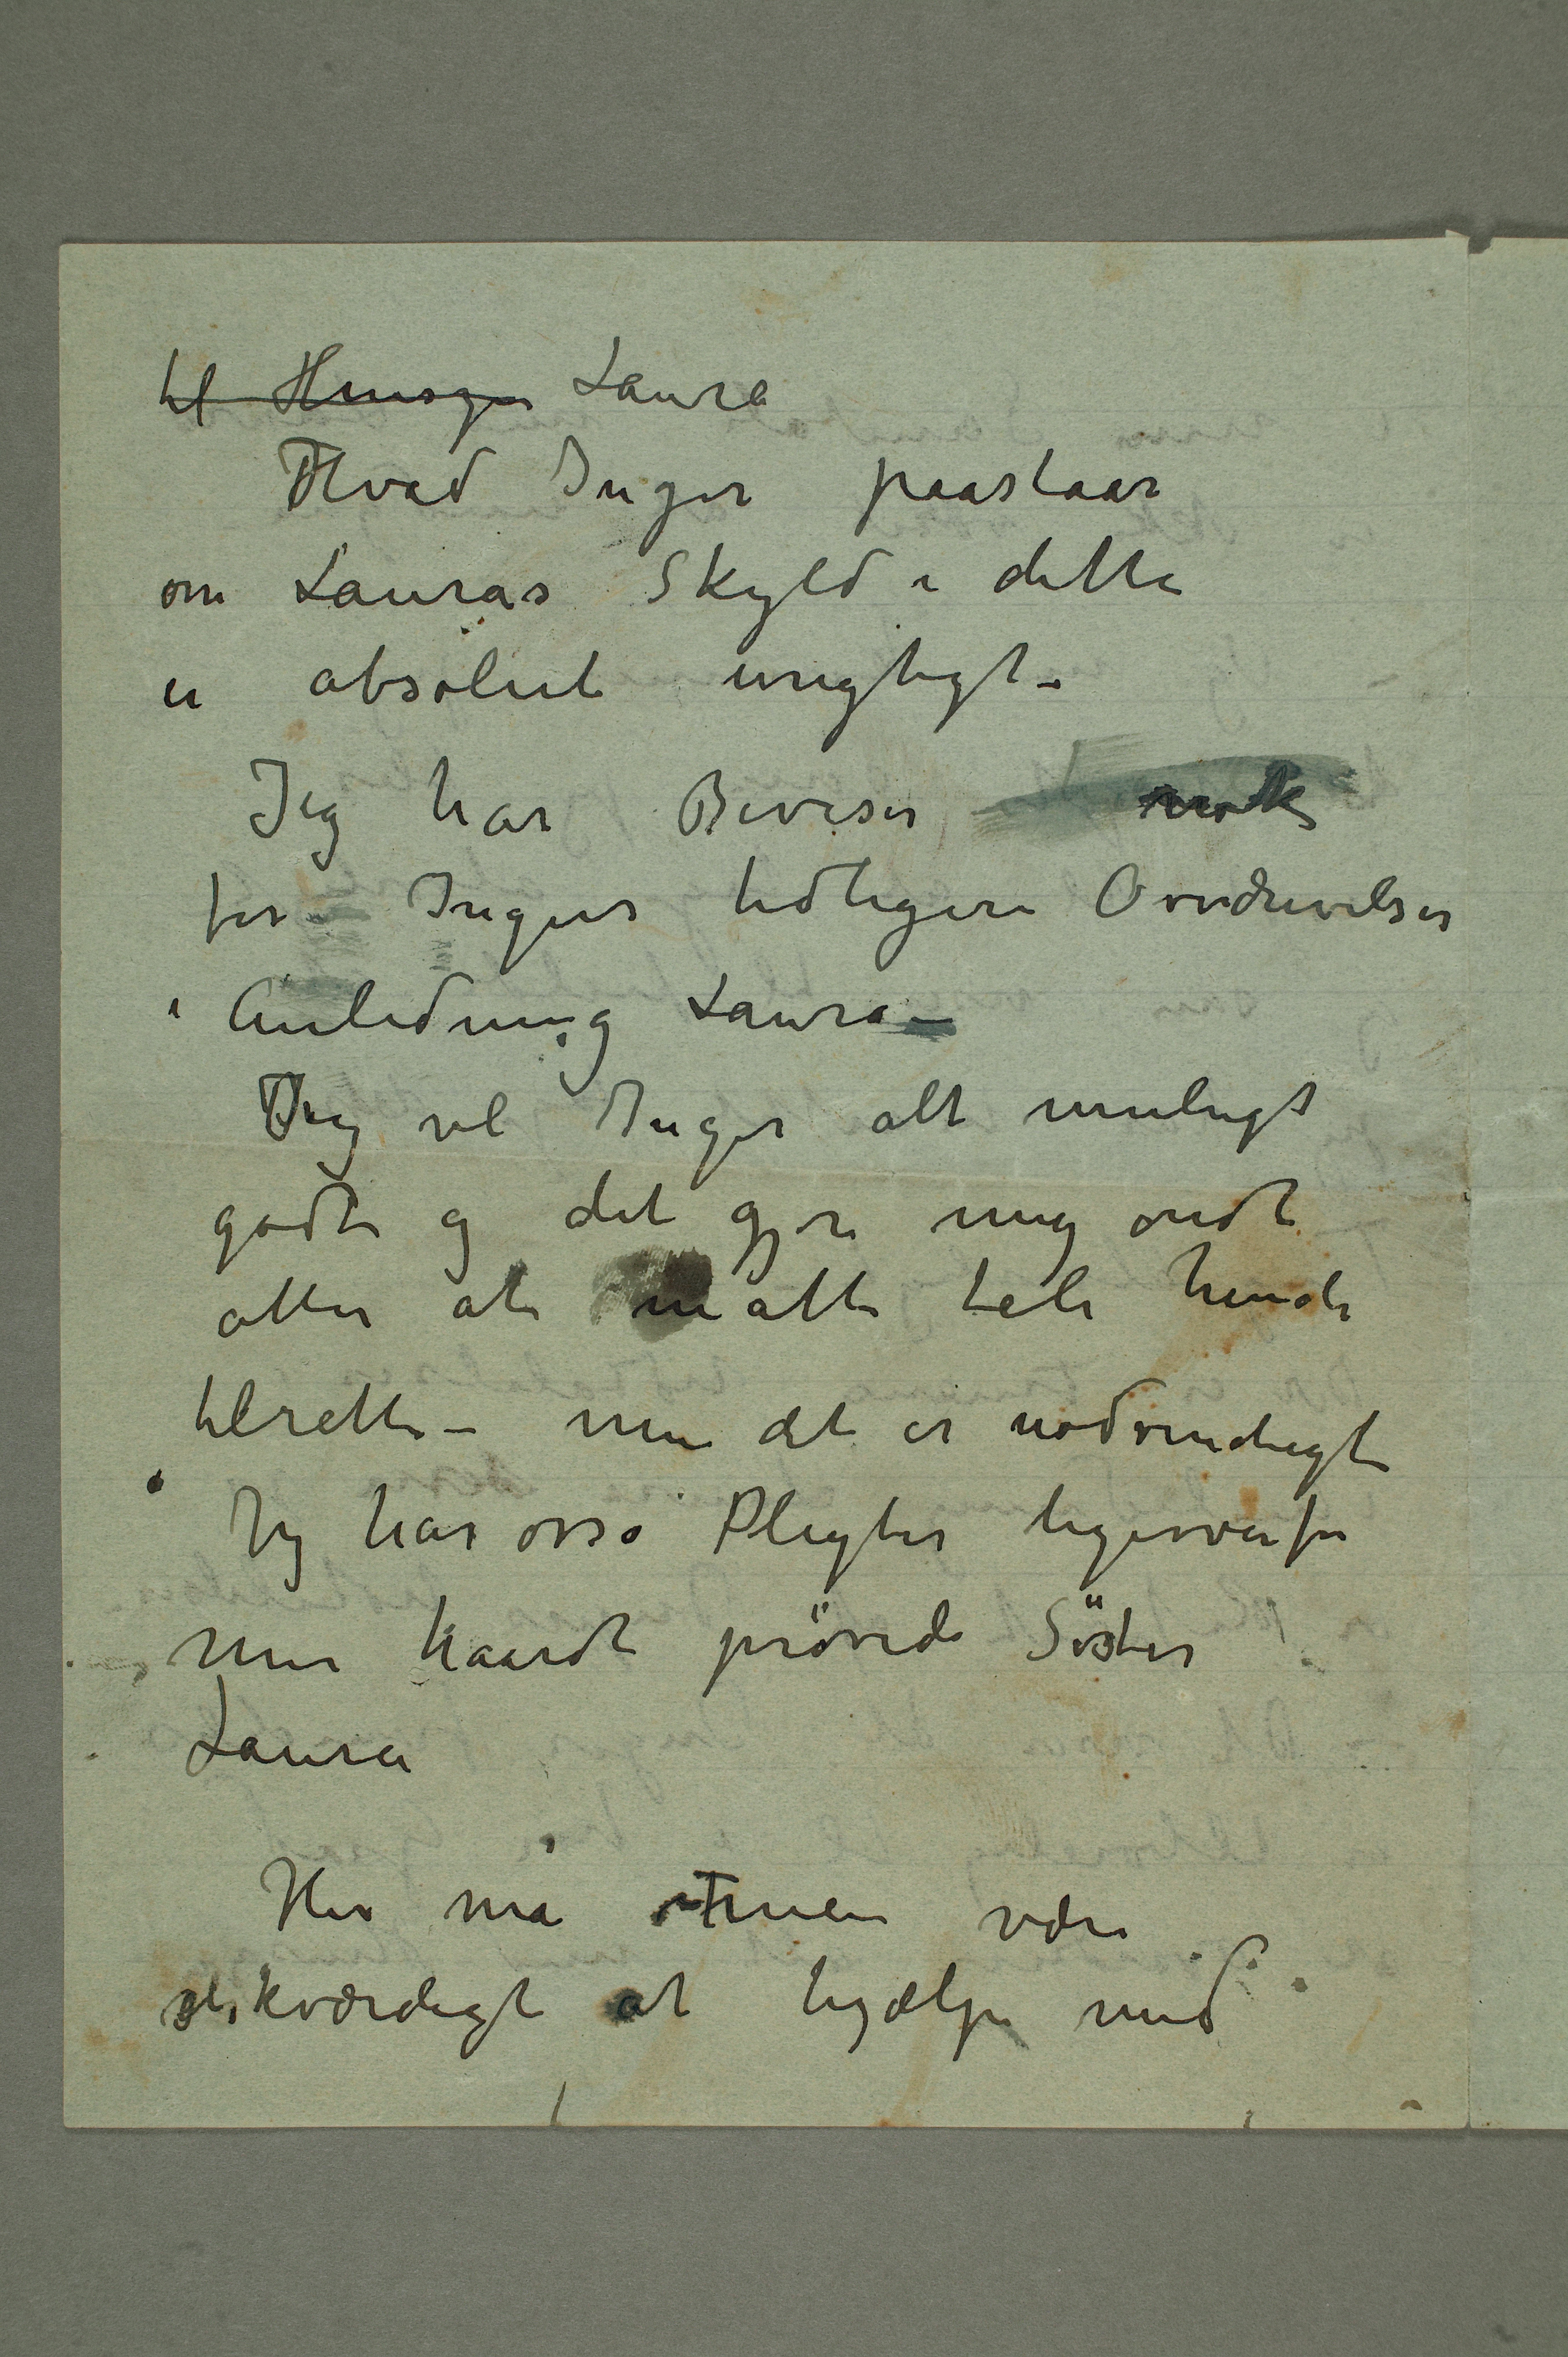 til Laura
Hvad Inger paastaar
om Lauras Skyld i dette
er absolut urigtigt –
Jeg har Beviser nok
for Ingers tidligere Overdrivelser
i Anledning Laura –
Jeg vil Inger alt muligt
godt og det gjør mig ondt
atter at måtte tale hende
tilrette – men det er nødvendigt
Jeg har osså Pligter ligeoverfor
min haardt prövede Söster
Laura
Her må Fruen være
elskværdigt at hjælpe med